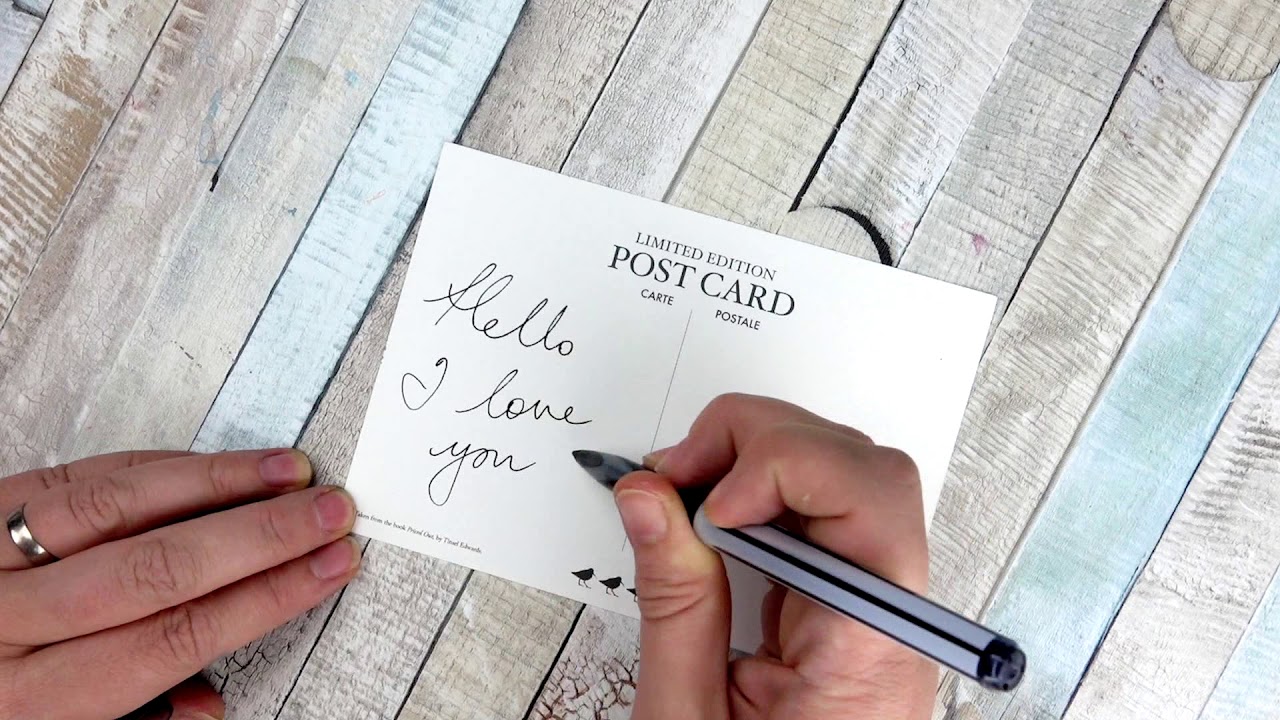 LIMITED EDITION
POST CARD
CARTE POSTALE
Hello
I love
you
Taken from the book Priced Out, by Tinsel Edwards